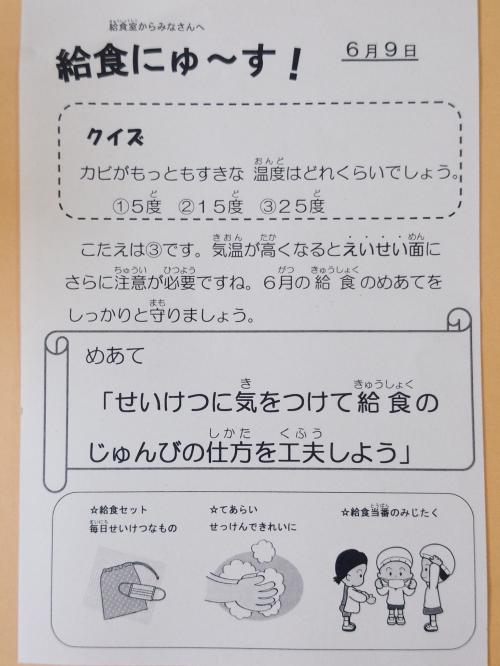 給食室からみなさんへ
給食にゅ～す！
６月９日
クイズ
カビがもっともすきな 温度はどれくらいでしょう。
①５度　②１５度　③２５度
こたえは③です。気温が高くなるとえいせい面に
さらに注意が必要ですね。６月の給食のめあてを
しっかりと守りましょう。
めあて
「せいけつに気をつけて給食の
じゅんびの仕方を工夫しよう」
☆給食セット
毎日せいけつなもの
☆てあらい
せっけんできれいに
☆給食当番のみじたく